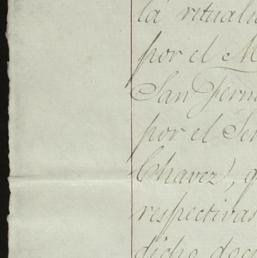 la rituali
por el M
San Fern
por el Señ
Chavez), q
respectivas
dicho doc